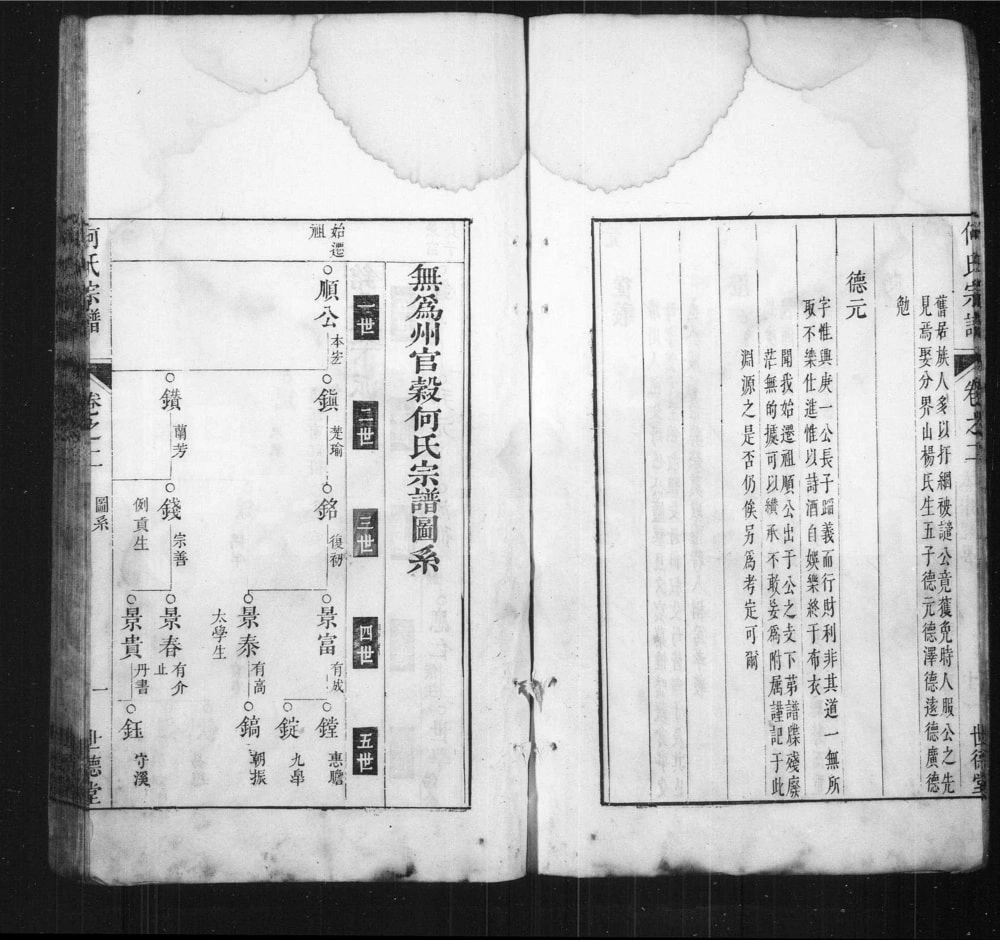 何氏宗譜
卷之二
世德堂
舊居族人多以扞網被譴公竟獲免時人服公之先
見焉娶分界山楊氏生五子德元德澤德遠德廣德
勉
德元
字惟興庚一公長子蹈義而行財利非其道一無所
取不樂仕進惟以詩酒自娛樂終于布衣
聞我始遷祖順公出于公之支下第譜牒殘廢
茫無的據可以續承不敢妄爲附屬謹記于此
淵源之是否仍俟另爲考定可爾
無爲州官穀何氏宗譜圖系
一世
二世
三世
四世
五世
始遷
祖
順公
本宏
鎮
楚瑜
銘
復初
景富
有成
鏜
惠瞻
錠
九皐
景泰
有高
太學生
鎬
朝振
鑽
蘭芳
錢
宗善
例貢生
景春
有介
止
景貴
丹書
鈺
守溪
何氏宗譜
卷之二
圖系
一
世德堂